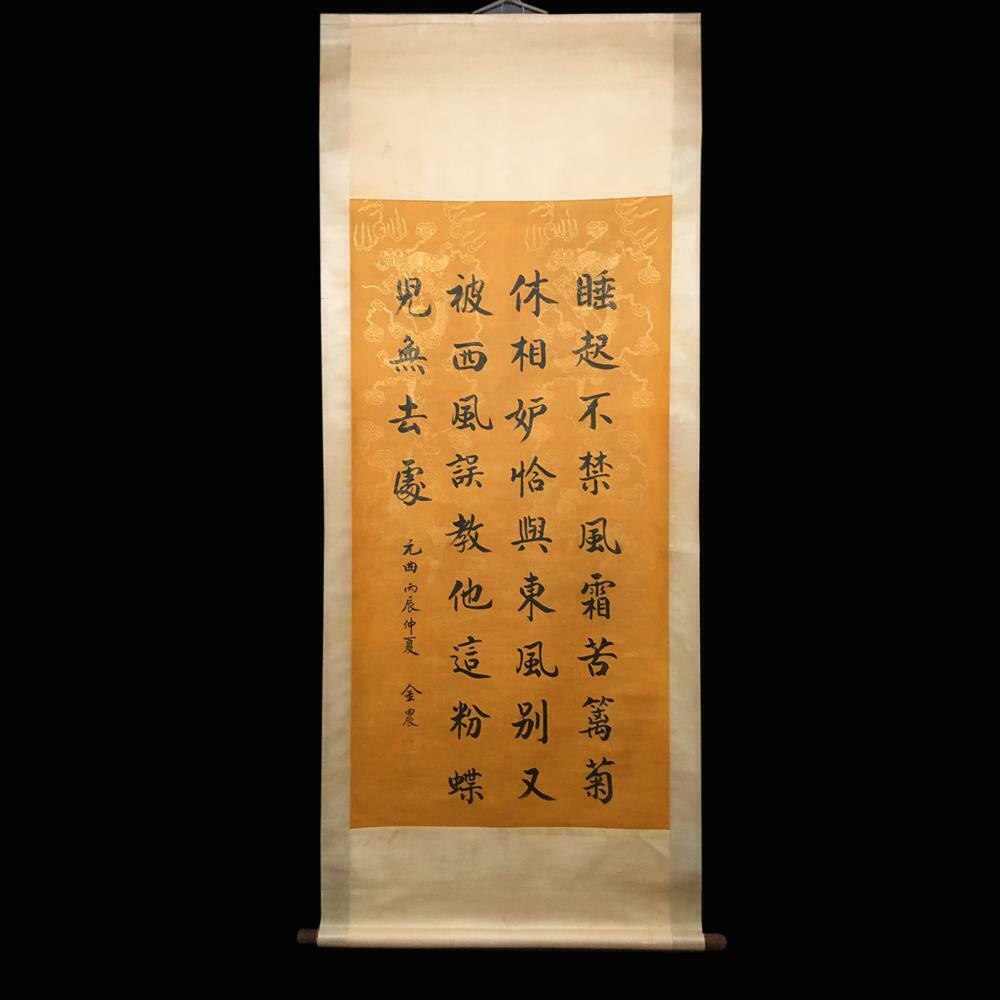 睡起不禁風霜苦籬菊
休相妒恰與東風別又
被西風誤教他這粉蝶
児無去處
元曲丙辰仲夏 金農